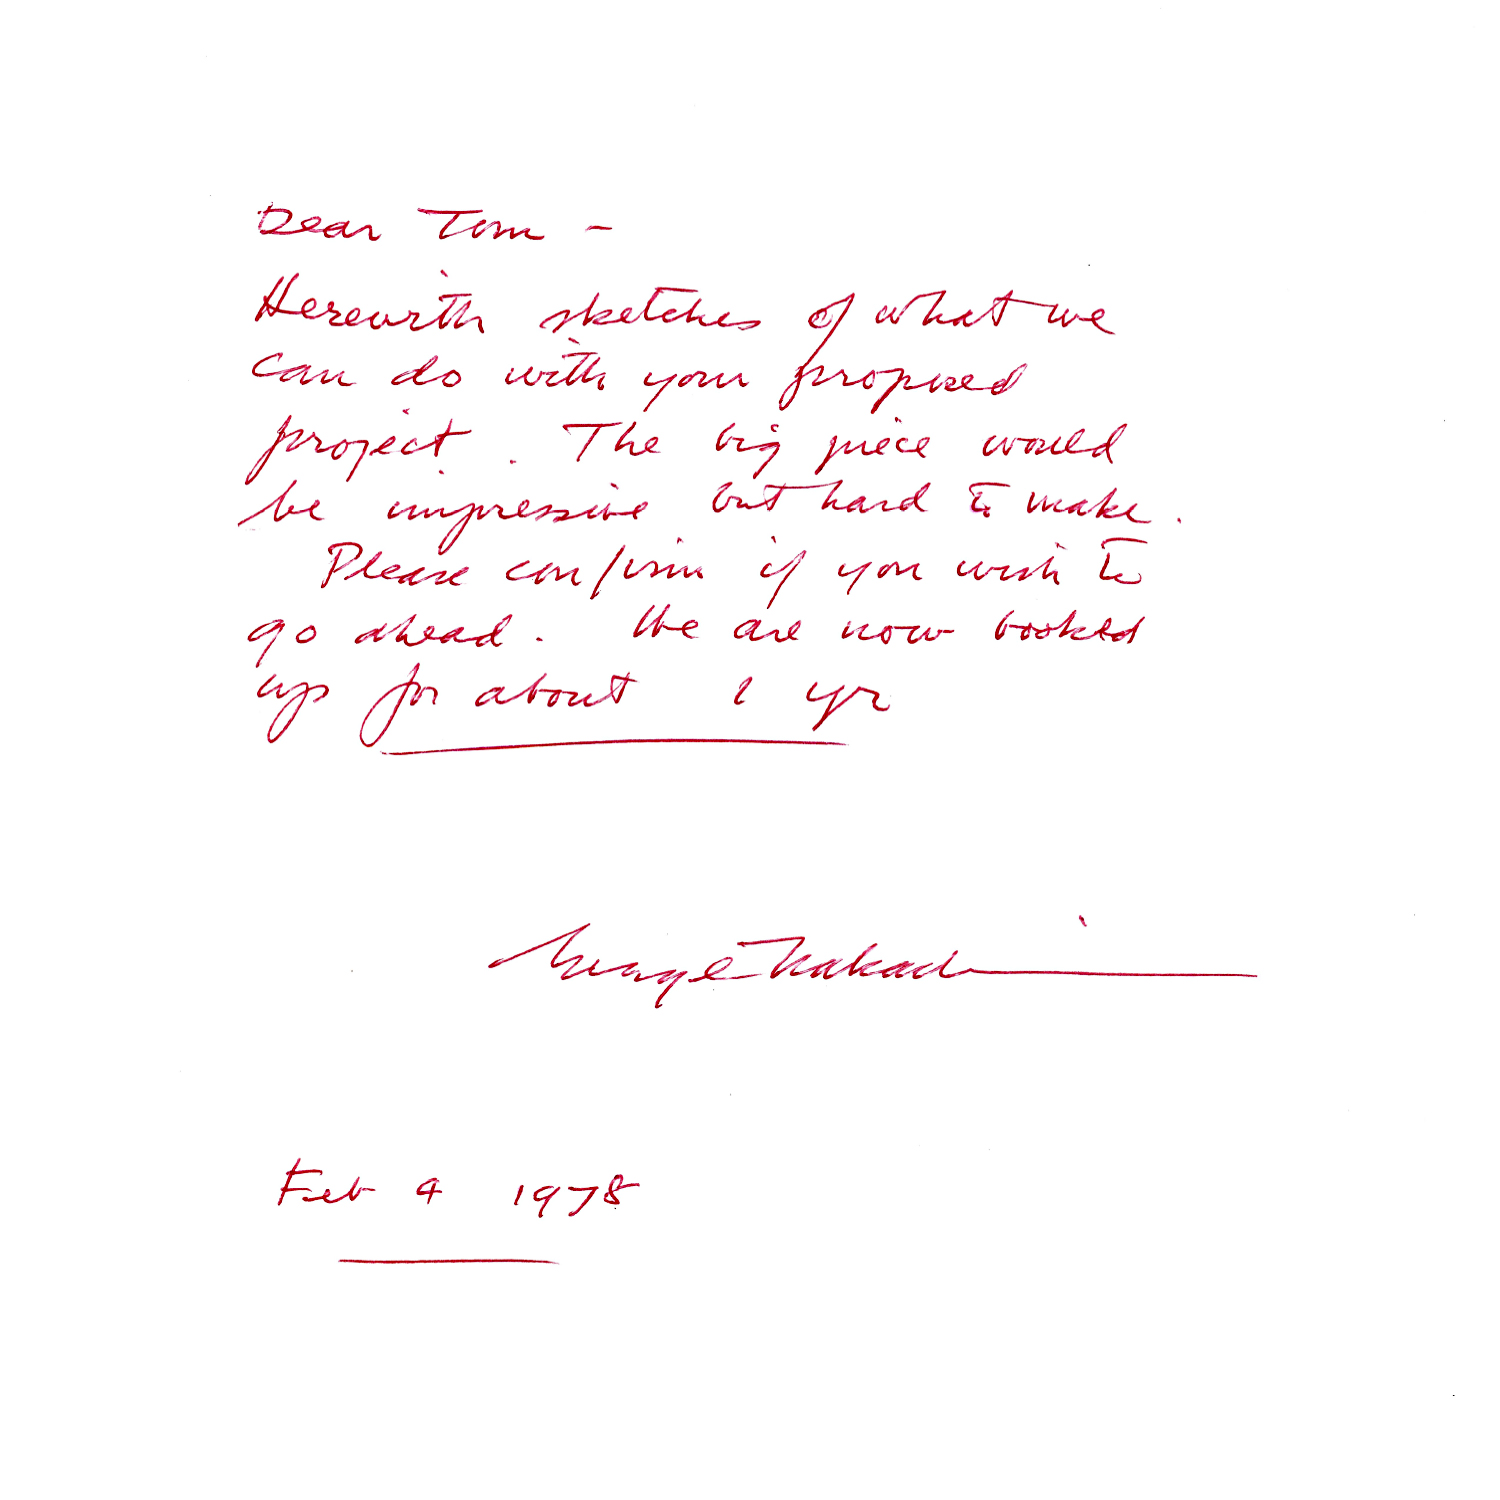 Dear Tom -
Herewith sketches of what we
can do with your proposed
project. The big piece would
be impressive but hard to make.
Please confirm if you wish to
go ahead. We are now booked
up for about 1 yr
George Nakashima
Feb 4 1978